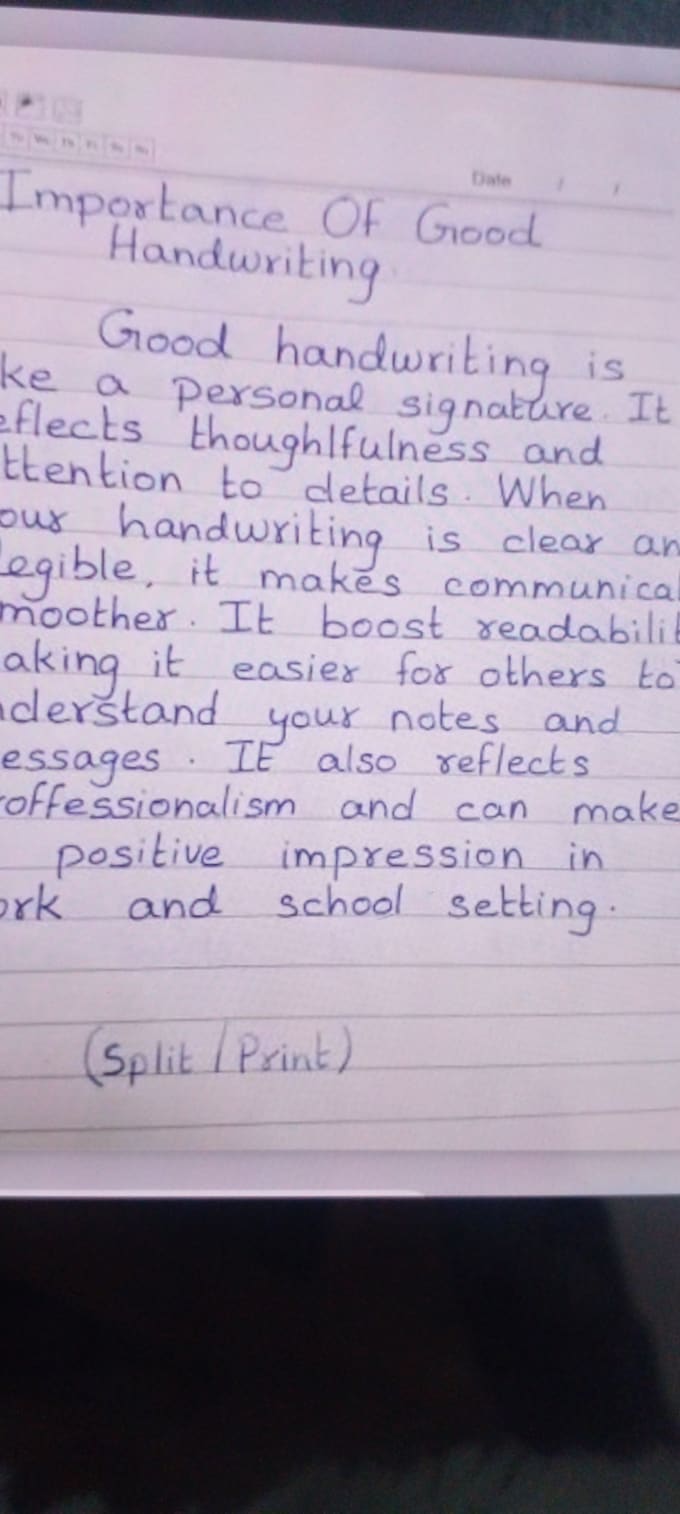 Date / /
Importance Of Good
Handwriting.
Good handwriting is
ke a personal signature. It
eflects thoughlfulness and
ttention to details. When
our handwriting is clear an
Legible, it makes communica
moother. It boost readabilit
aking it easier for others to
nderstand your notes and
essages. It also reflects
roffessionalism and can make
positive impression in
ork and school setting.
(Split / Print)